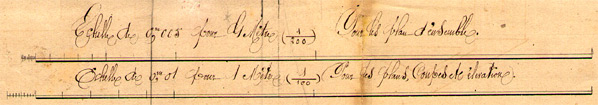 Echelle de 0m005 pour 1 Mètre (1/200) Pour les plan d'ensemble.
Echelle de 0m01 pour 1 Mètre (1/100) Pour les plans, Coupes et élévation.